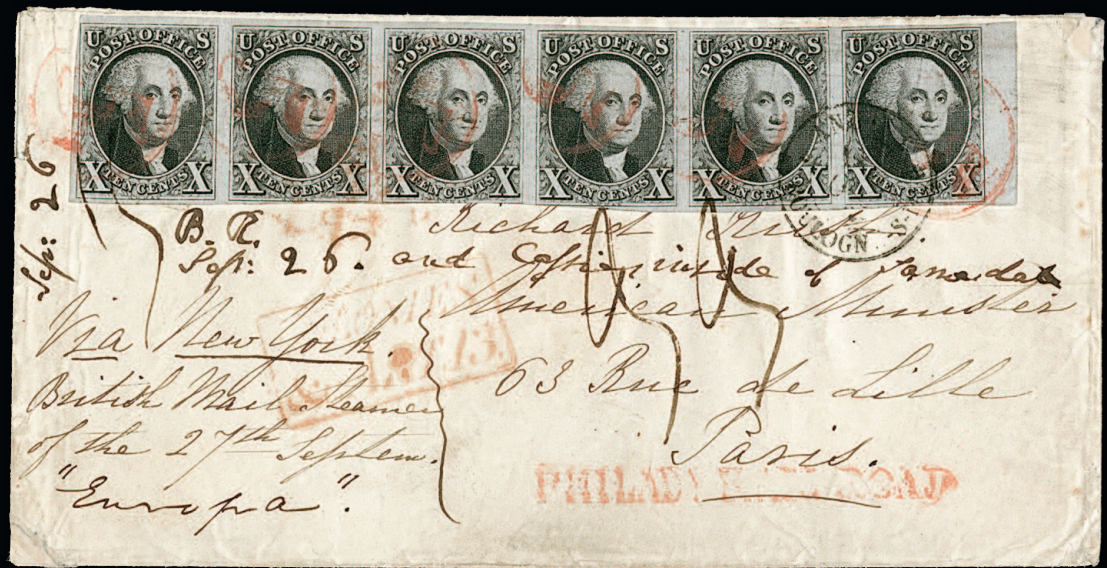 U POST OFFICE S
X TEN CENTS X
U POST OFFICE S
X TEN CENTS X
U POST OFFICE S
X TEN CENTS X
U POST OFFICE S
X TEN CENTS X
U POST OFFICE S
X TEN CENTS X
U POST OFFICE S
X TEN CENTS X
Sep: 26
Richard Rush.
B. R.
Sep: 26. and
of same date
American Minister
63 Rue de Lille
Paris.
Via New York
British Mail Steamer
of the 27th Septem.
"Europa".
PHILADA RAILROAD